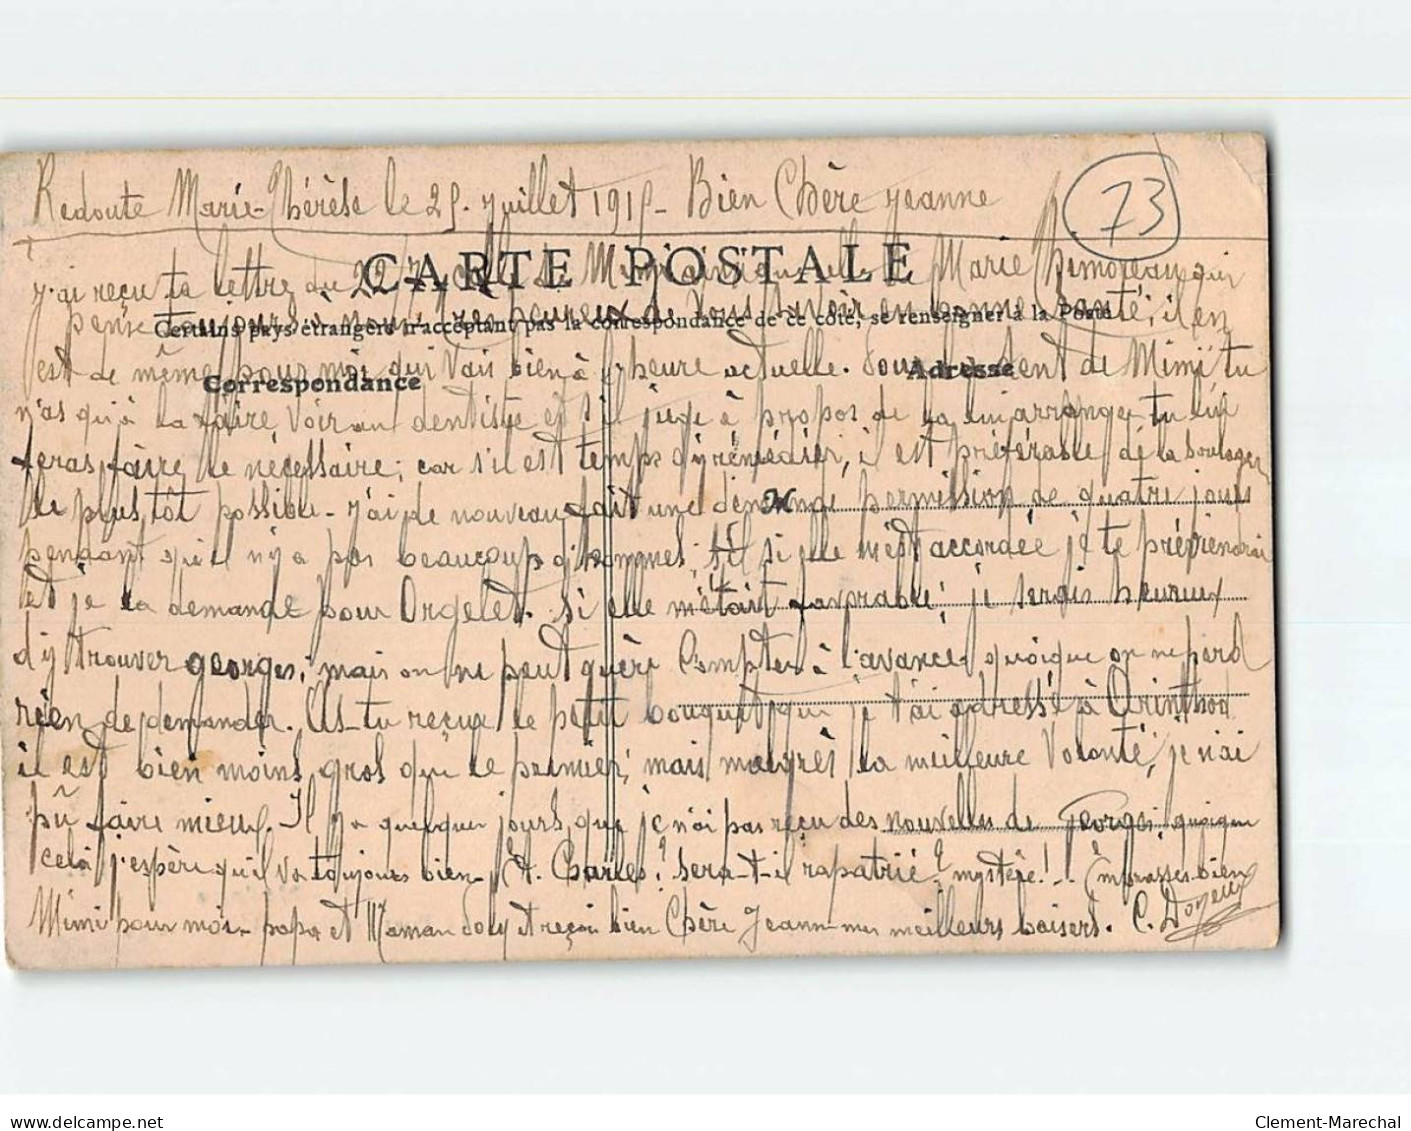 Redoute Marie-Thérèse le 25 Juillet 1915 - Bien Chère Jeanne
73
J'ai reçu ta lettre du 22 celle de Mimi ainsi que celle de Marie qui
CARTE POSTALE
pense toujours à nous, très heureux de vous savoir en bonne santé, il en
Certains pays étrangers n'acceptant pas la correspondance de ce côté, se renseigner à la Poste
est de même pour moi qui vais bien à l'heure actuelle. Pour la dent de Mimi tu
Correspondance
Adresse
n'as qu'à la faire voir au dentiste et s'il juge à propos de la lui arranger tu lui
feras faire le nécessaire, car s'il est temps d'y remédier, il est préférable de la soulager
le plus tôt possible - J'ai de nouveau fait une demande permission de quatre jours
M
pendant qu'il n'y a pas beaucoup d'hommes, si elle m'est accordée je te préviendrai
et je la demande pour Orgelet. Si elle m'était favorable, je serais heureux
d'y trouver Georges, mais on ne peut guère compter à l'avance quoique on ne perd
rien de demander. As-tu reçue le petit bouquet que je t'ai adressé à Arinthod
il est bien moins gros que le premier, mais malgrès la meilleure volonté, je n'ai
pû faire mieux. Il y a quelques jours que je n'ai pas reçu des nouvelles de Georges, quoique
celà j'espère qu'il va toujours bien - Et Charles? sera-t-il rapatrié? mystère! - Embrasses bien
Mimi pour moi - papa et Maman Doly et reçoi bien Chère Jeanne mes meilleurs baisers. C. Doyeux
www.delcampe.net
Clement-Marechal